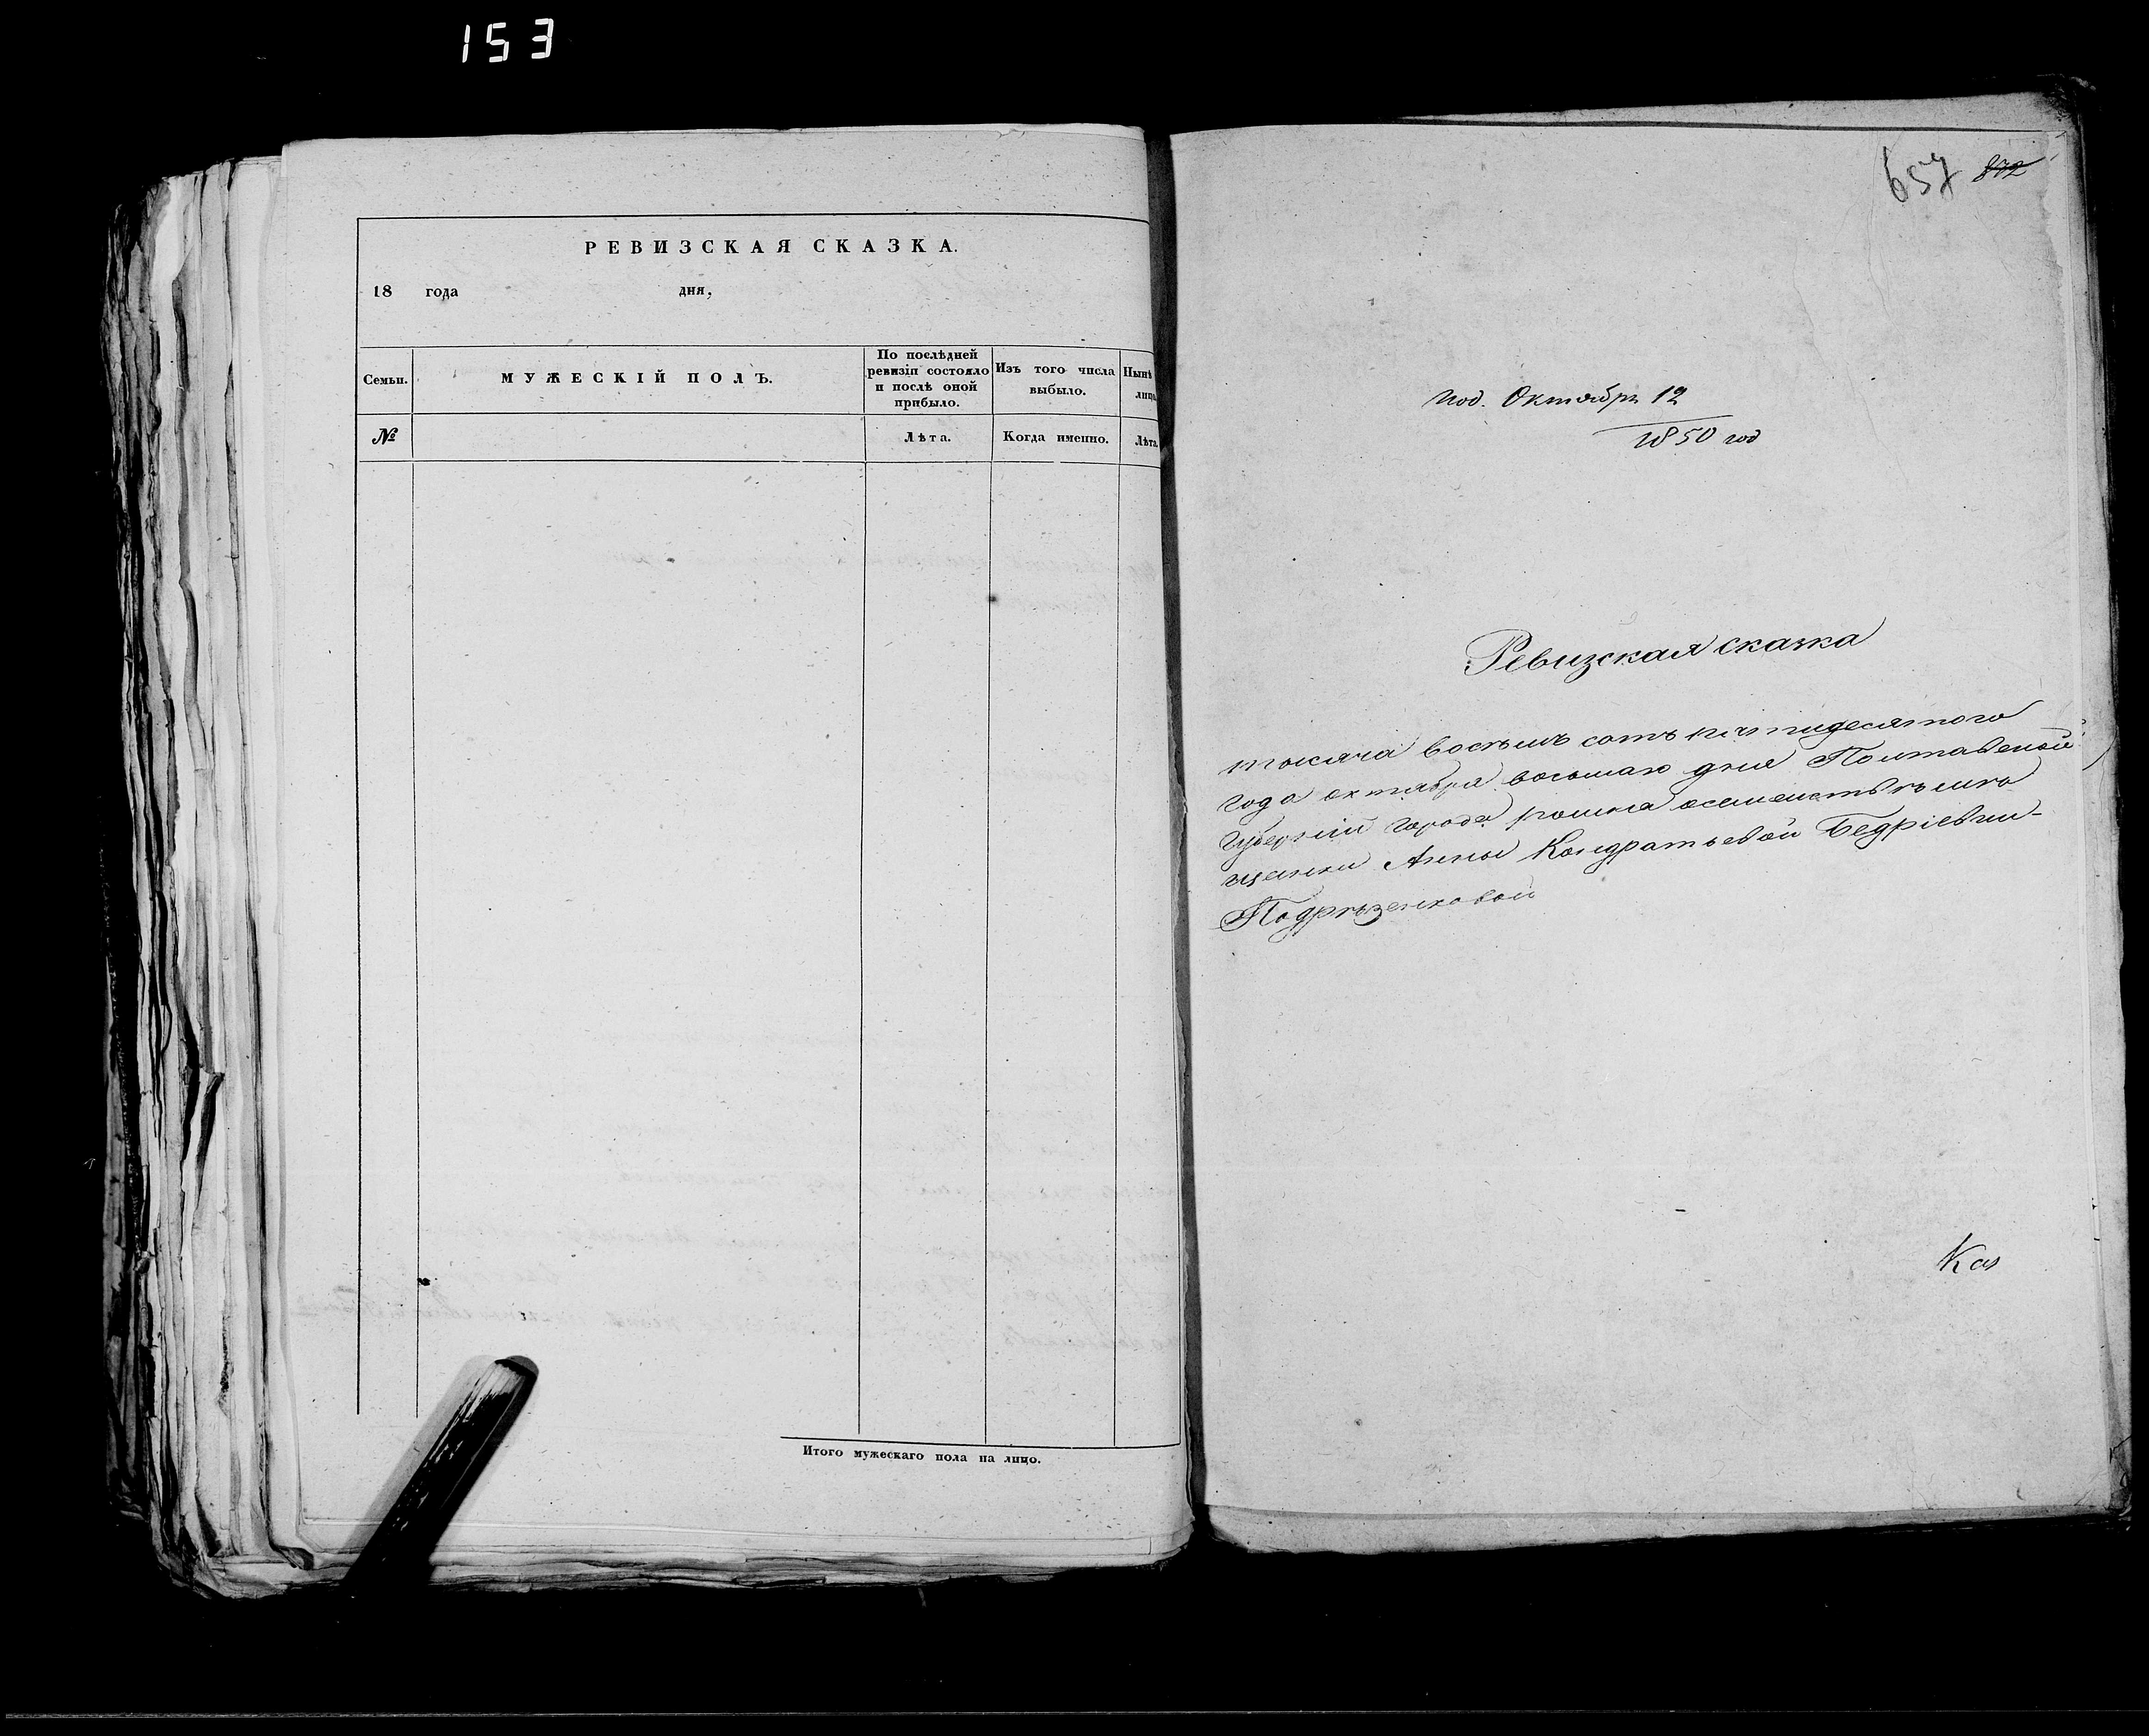 153
РЕВИЗСКАЯ СКАЗКА.
18 года дня,
Семьи.
МУЖЕСКІЙ ПОЛЪ.
По послѣдней
ревизіи состояло
и послѣ оной
прибыло.
Изъ того числа
выбыло.
Нынѣ
лицо
№
Лѣта.
Когда именно.
Лѣта.
Итого мужескаго пола на лицо.
657 872
Под. Октября 12
1850 год
Ревизская сказка
тысяча восемь сотъ пятидесятого
года октября восьмаго дня Полтавской
Губерніи города
Анны Кондратьевой
Подрѣзенковой
Ка